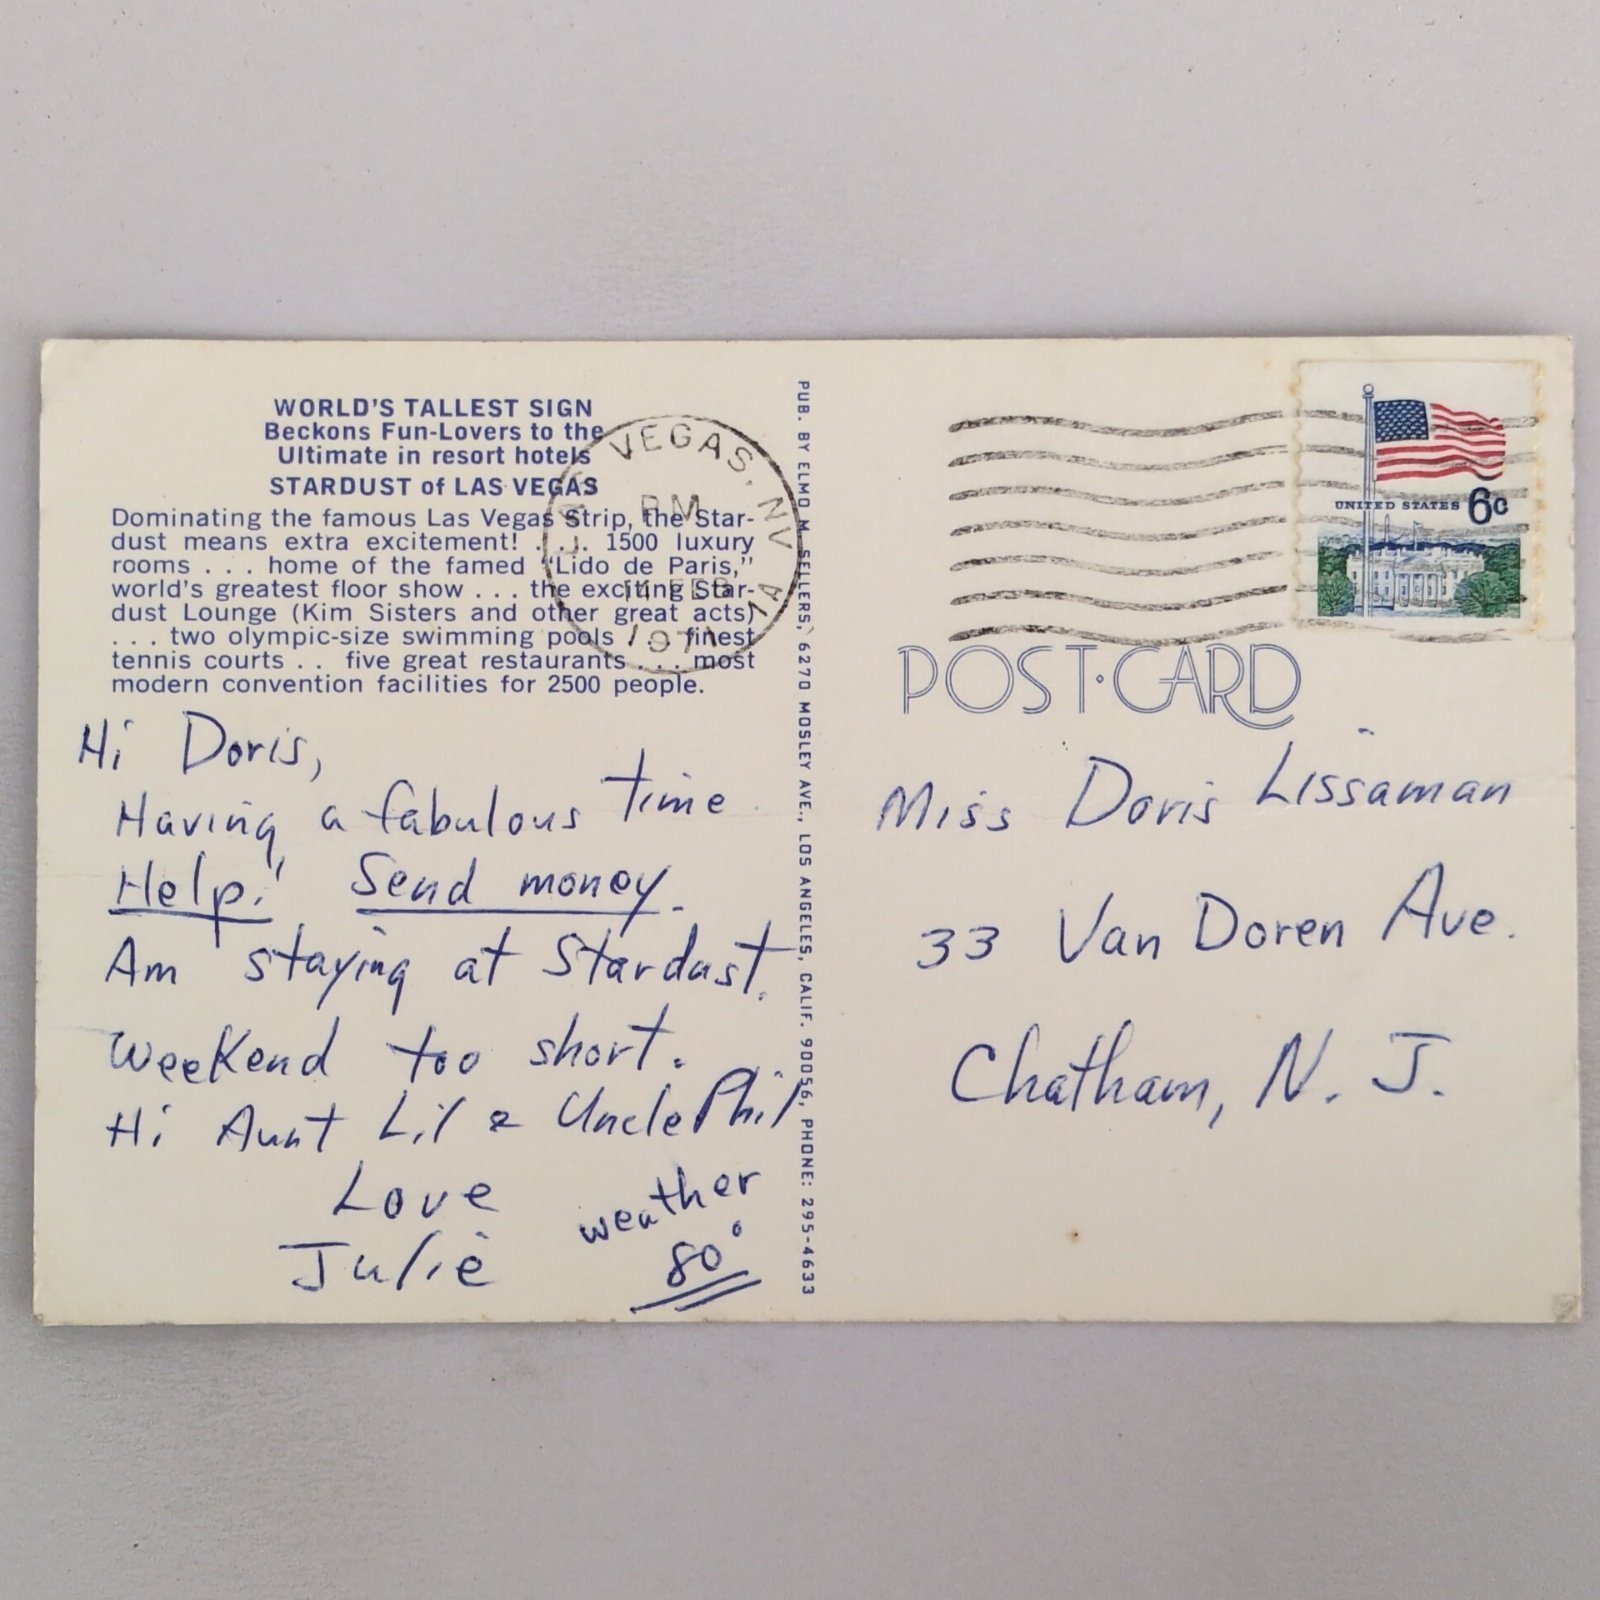 WORLD'S TALLEST SIGN
Beckons Fun-Lovers to the
Ultimate in resort hotels
STARDUST of LAS VEGAS
Dominating the famous Las Vegas Strip, the Star-
dust means extra excitement! . . . 1500 luxury
rooms . . . home of the famed "Lido de Paris,"
world's greatest floor show . . . the exciting Star-
dust Lounge (Kim Sisters and other great acts)
. . . two olympic-size swimming pools . . . finest
tennis courts . . five great restaurants . . . most
modern convention facilities for 2500 people.
VEGAS, NV
PM
FEB
1971
Hi Doris,
Having a fabulous time
Help! Send money.
Am staying at Stardust.
Weekend too short.
Hi Aunt Lil & Uncle Phil
Love
Julie
weather
80°
PUB. BY ELMO M. SELLERS, 6270 MOSLEY AVE., LOS ANGELES, CALIF. 90056, PHONE: 295-4633
UNITED STATES 6c
POST·CARD
Miss Doris Lissaman
33 Van Doren Ave.
Chatham, N. J.